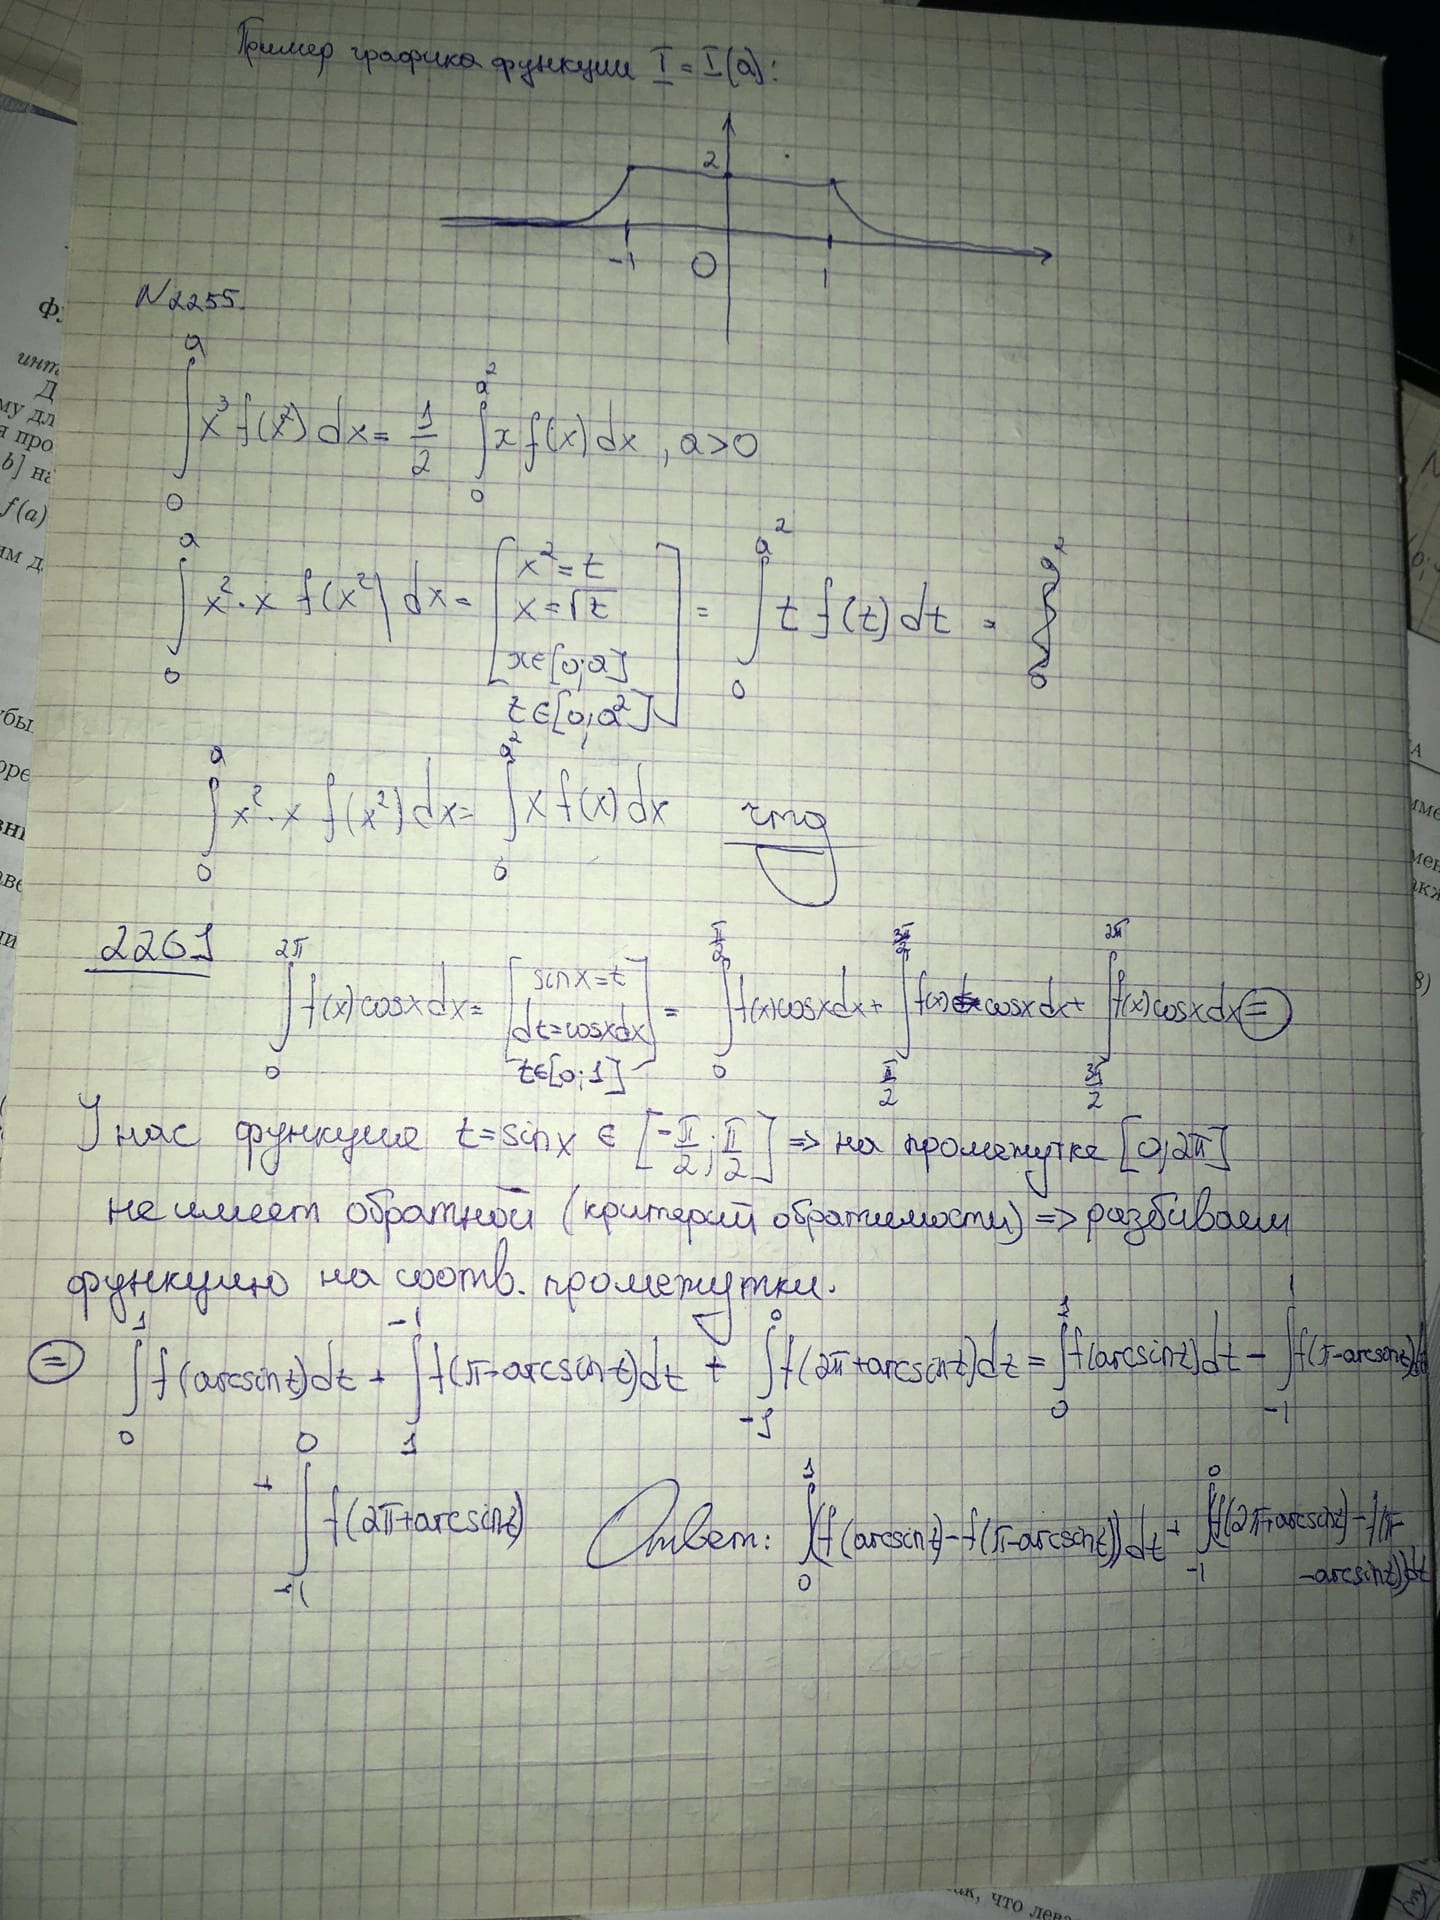 Пример графика функции I = I(a):
2
-1 0 1
N 2255.
∫₀ᵃ x³ f(x²) dx = 1/2 ∫₀^(a²) x f(x) dx , a > 0
∫₀ᵃ x² · x f(x²) dx = [x² = t
x = √t
x ∈ [0; a]
t ∈ [0; a²]] = ∫₀^(a²) t f(t) dt =
∫₀ᵃ x² · x f(x²) dx = ∫₀^(a²) x f(x) dx чтд
2261
∫₀^(2π) f(x) cosx dx = [sinx = t
dt = cosx dx
t ∈ [0; 1]] = ∫₀^(π/2) f(x) cosx dx + ∫_(π/2)^(3π/2) f(x) cosx dx + ∫_(3π/2)^(2π) f(x) cosx dx =
У нас функция t = sinx ∈ [-π/2; π/2] => на промежутке [0; 2π]
не имеет обратной (критерий обратимости) => разбиваем
функцию на соотв. промежутки.
= ∫₀¹ f(arcsint) dt + ∫₁^(-1) f(π-arcsint) dt + ∫₋₁⁰ f(2π+arcsint) dt = ∫₀¹ f(arcsint) dt - ∫₋₁¹ f(π-arcsint) dt
+ ∫₋₁⁰ f(2π+arcsint) Ответ: ∫₀¹ (f(arcsint) - f(π-arcsint)) dt + ∫₋₁⁰ (f(2π+arcsint) - f(π-
-arcsint)) dt
инт
Д
му дл
я про
b] на
f(a)
им д
убы
оре
аве
что лева